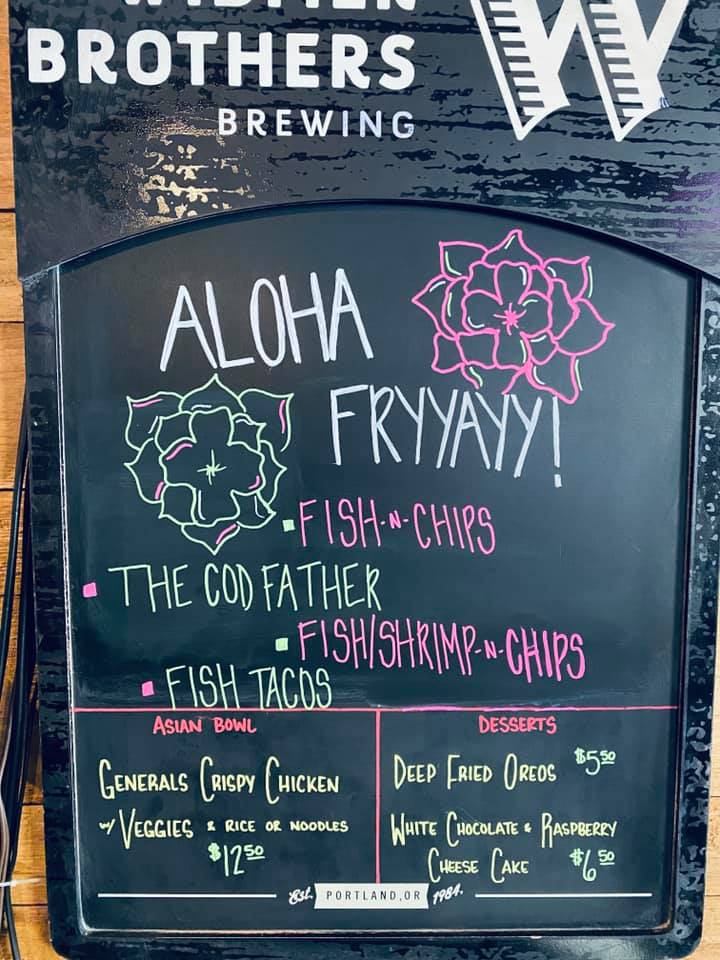 BROTHERS
BREWING
ALOHA
FRYYAYY!
FISH-N-CHIPS
THE COD FATHER
FISH/SHRIMP-N-CHIPS
FISH TACOS
ASIAN BOWL
GENERALS CRISPY CHICKEN
W/ VEGGIES & RICE OR NOODLES
$12.50
DESSERTS
DEEP FRIED OREOS $5.50
WHITE CHOCOLATE & RASPBERRY
CHEESE CAKE $6.50
Est. PORTLAND, OR 1984.